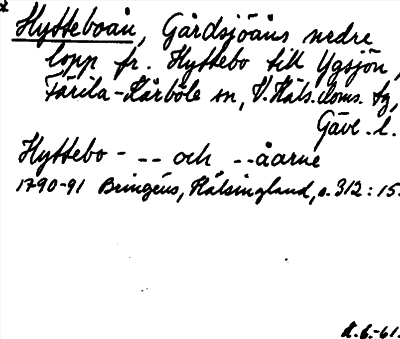 Hytteboån, Gårdsjöåns nedre
lopp fr. Hyttebo till Ygsjön,
Färila-Kårböle sn, V.Häls.doms. tg,
Gävl. l.
Hyttebo - -- och --åarne
1790-91 Bringéus, Hälsingland, s. 312:15.